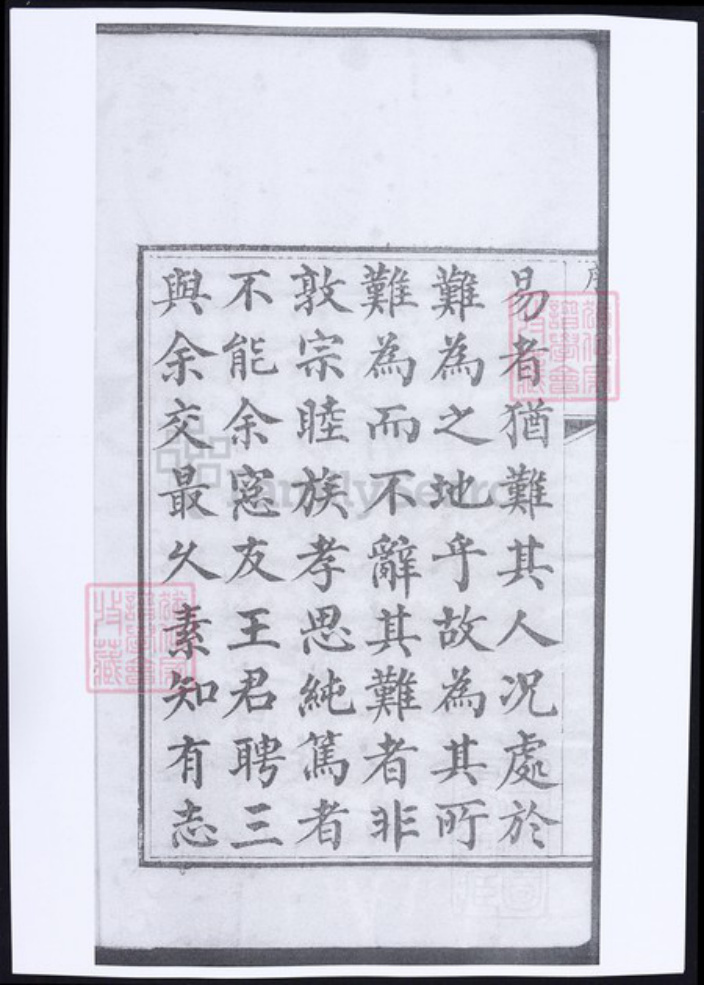 易者猶難其人况處於
難為之地乎故為其所
難為而不辭其難者非
敦宗睦族孝思純篤者
不能余窓友王君聘三
與余交最久素知有志